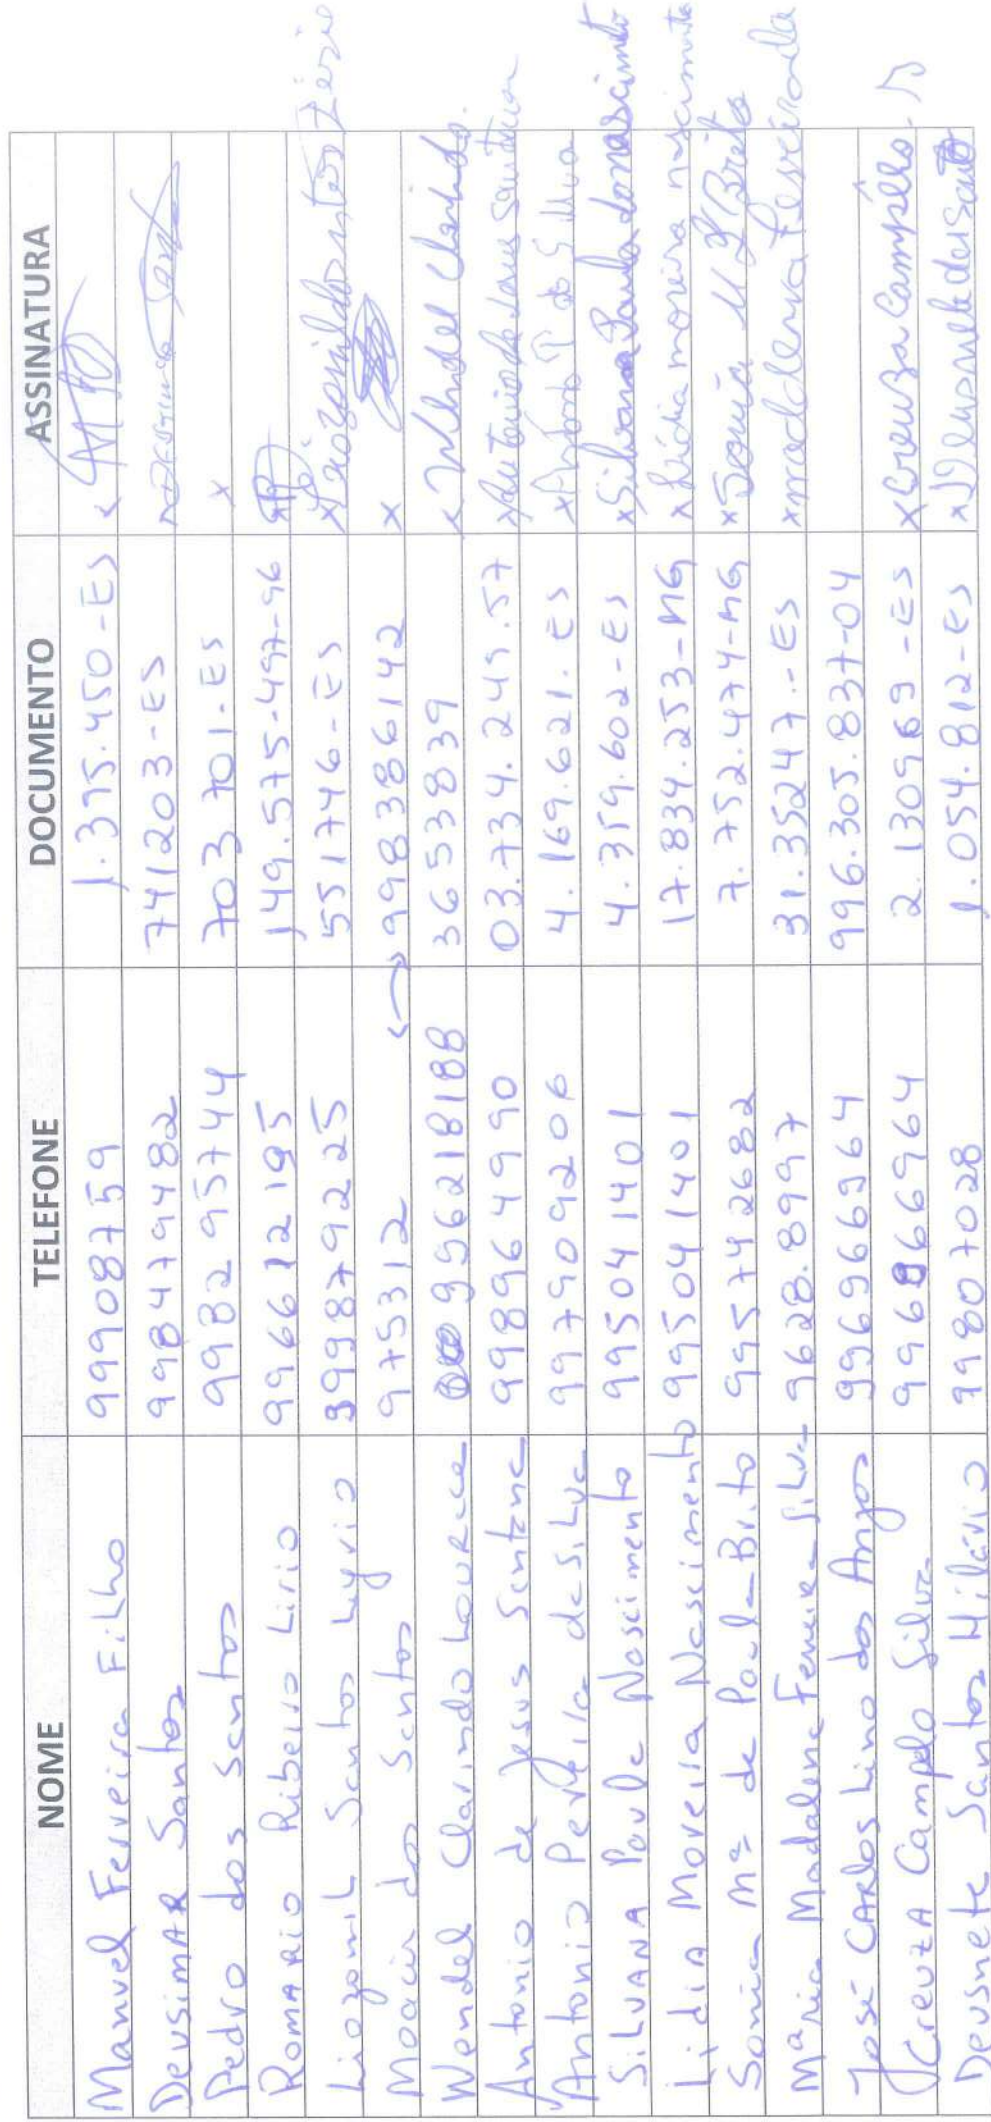 NOME TELEFONE DOCUMENTO ASSINATURA
Manuel Ferreira Filho 999908759 1.395.450-ES
DeusimAR Santos 998479482 741203-ES
Pedro dos Santos 998295744 703701.ES x
RomARio Ribeiro Lirio 996612195 149.575-497-96
Liozomil Santos Lyrio 999879225 551746-ES
Moacir dos Santos 975312 998386142 x
Wendel Clarindo Lourace 9996218188 3653839 x Whndel Clarindo.
Antonio de Jesus Santana 998964990 03.734.249.57 x Antonio de Jesus Santana
Antonio Pereira da Silva 997909206 4.169.621.ES x Antonio P da Silva
SiLvANA Paula Nascimento 995041401 4.359.602-ES x Silvana Paula do nascimento
LidiA MoreiRA Nascimento 995041401 17.834.253-MG x Lídia moreira nascimento
Sonia Mª de Paula Brito 995742682 7.752.474-MG x Sonia M P Brito
Mªria Madalena Ferreira Silva 9628.8997 31.35247.-ES x madalena
José CARlos Lino dos Anjos 996966964 996.305.837-04
CreuzA Campelo Silva 996866964 2.130969-ES x Creuza Campelo. S
Deusnete Santos Hilário 99807028 1.054.812-ES x Deusnete dos Santos